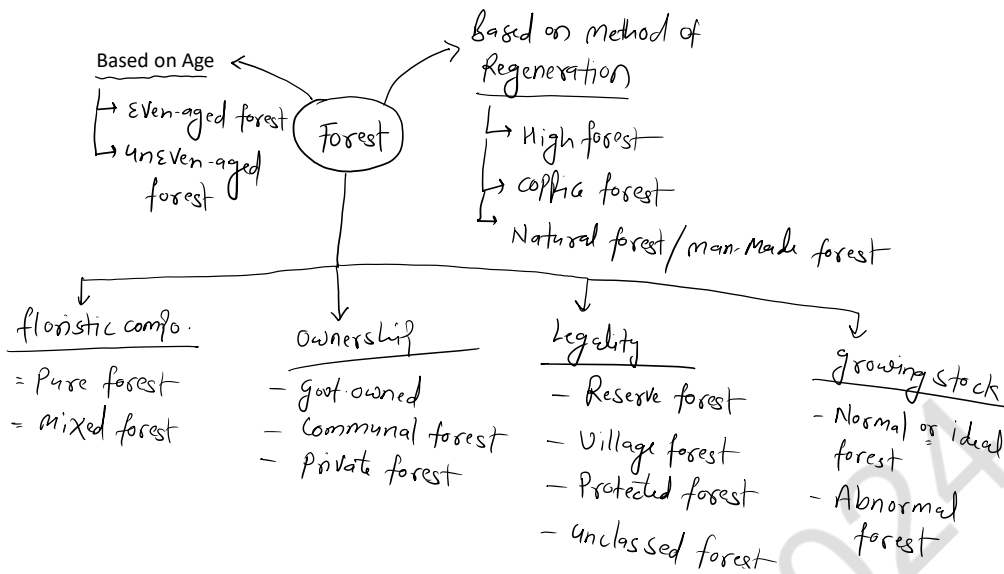 Based on Age
→ Even-aged forest
→ unEven-aged
forest
Forest
Based on Method of
Regeneration
→ High forest
→ coppice forest
→ Natural forest/man-Made forest
floristic compo.
= Pure forest
= Mixed forest
ownership
- govt. owned
- Communal forest
- Private forest
Legality
- Reserve forest
- Village forest
- Protected forest
- unclassed forest
growing stock
- Normal or ideal
forest
- Abnormal
forest
024